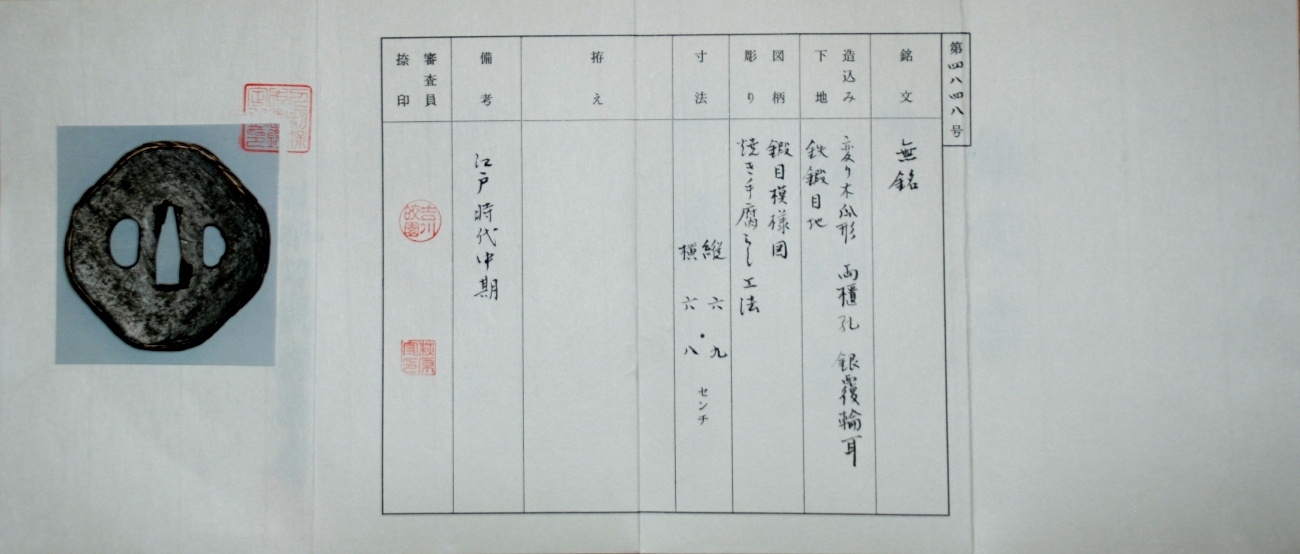 第四八四八号
銘文
無銘
造込み
下地
変り木瓜形 両櫃孔 銀覆輪耳
鉄鍛目地
図柄
彫り
鍛目模様図
焼き手腐らし工法
寸法
縦 六・九
横 六・八
センチ
拵え
備考
江戸時代中期
審査員
捺印
吉川
萩原